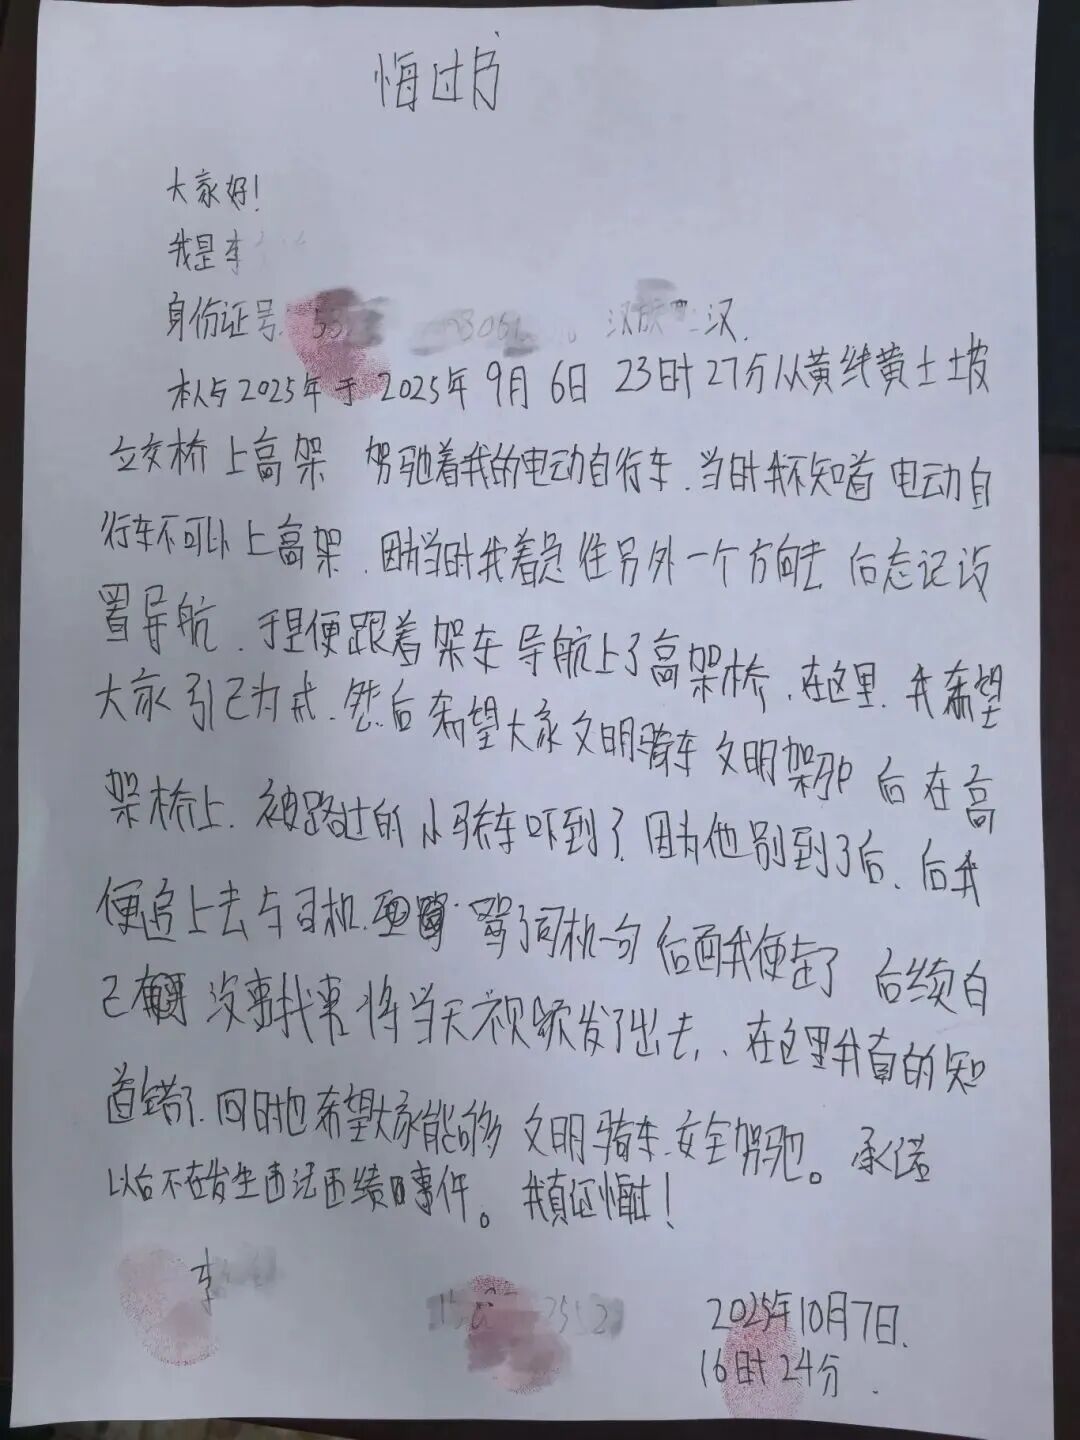 悔过书
大家好!
我是李
身份证号 汉族 汉.
本人与2025年于2025年9月6日 23时27分从黄线黄土坡
立交桥上高架 驾驰着我的电动自行车.当时我不知道电动自
行车不可以上高架.因为当时我着急往另外一个方向去 后忘记设
置导航.于是便跟着架车导航上了高架桥.在这里.我希望
大家引己为戒.然后希望大家文明骑车文明架驴 后在高
架桥上.被路过的小轿车吓到了.因为他别到了后、后我
便追上去与司机 骂了司机一句 后面我便走了 后续自
己 没事找事 将当天视频发了出去,.在这里我真的知
道错了.同时也希望大家能够 文明骑车.安全驾驰。承诺
以后不在发生违法违绩 事件。我真证悔过!
李
2025年10月7日.
16时24分.